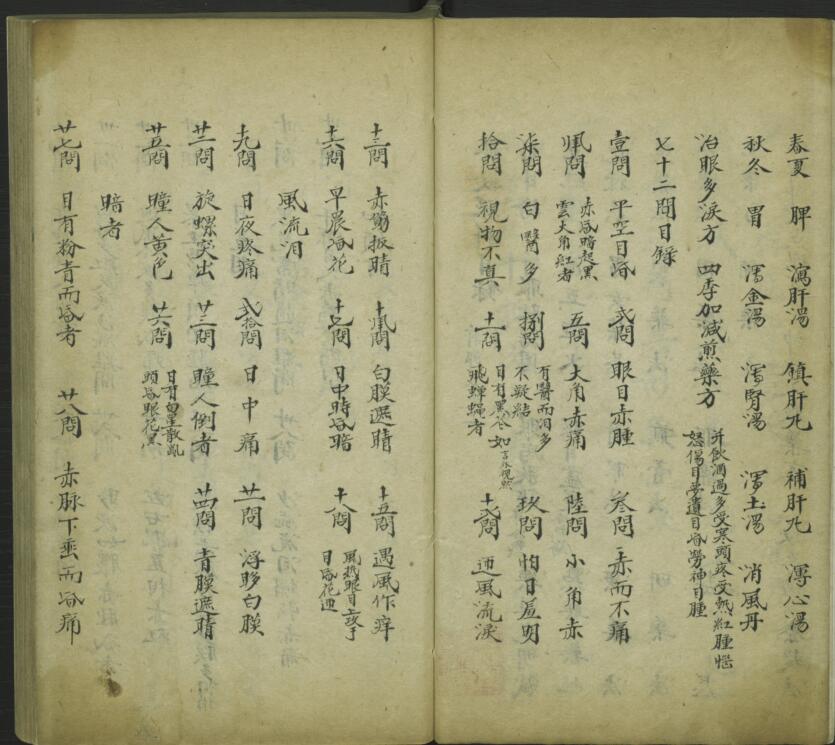 春夏 脾 瀉肝湯 鎮肝丸 補肝丸 瀉心湯
秋冬 胃 瀉金湯 瀉腎湯 瀉土湯 消風丹
治眼多淚方 四季加減煎藥方 并飲酒過多受寒頭疼受熱紅腫惱
怒傷目夢遺目昏勞神目腫
七十二問目錄
壹問 平空目昏 弍問 眼目赤腫 叁問 赤而不痛
肆問 赤昏暗起黑
雲大角紅者 五問 大角赤痛 陸問 小角赤
柒問 白醫多 捌問 有醫而泪多
不凝結 玖問 怕日羞明
拾問 視物不真 十一問 目有黑花如
飛蟬蠅者 十弍問 迎風流淚
十三問 赤努扳睛 十四問 白膜遮睛 十五問 遇風作痒
十六問 早晨昏花 十七問 日中時昏暗 十八問 風熱眼目上攻于
目昏花迎
風流泪
十九問 日夜疼痛 弍拾問 日中痛 廿一問 浮眵白膜
廿二問 旋螺突出 廿三問 瞳人倒者 廿四問 青膜遮睛
廿五問 瞳人黃色 廿六問 目有白星散亂
頭昏眼花黑
暗者
廿七問 目有粉青而昏者 廿八問 赤脉下垂而昏痛